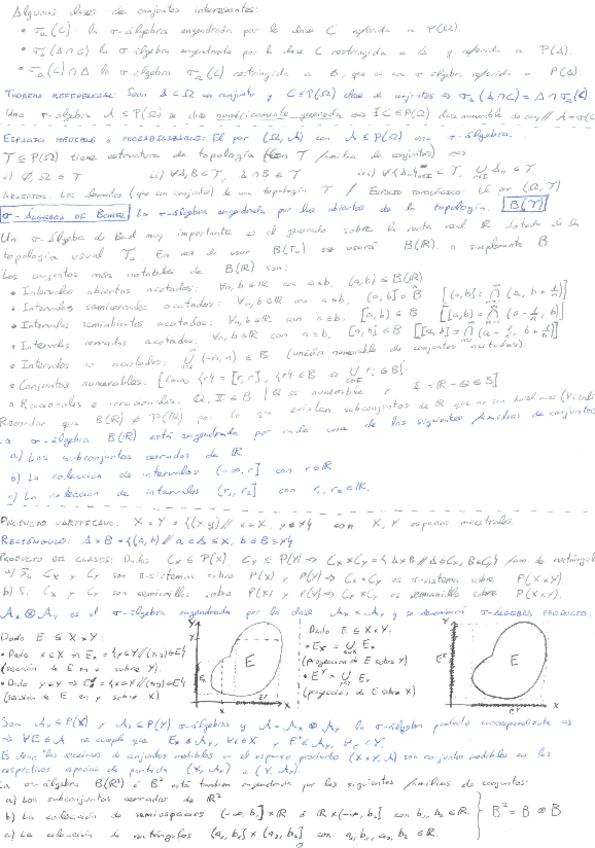 Algunas clases de conjuntos interesantes:
• σ_Ω(C) la σ-álgebra engendrada por la clase C referida a P(Ω).
• σ_Δ(Δ∩C) la σ-álgebra engendrada por la clase C restringida a Δ y referida a P(Δ).
• σ_Ω(C)∩Δ la σ-álgebra σ_Ω(C) restringida a Δ, que es una σ-álgebra referida a P(Δ).
Sean Δ⊆Ω un conjunto y C⊆P(Ω) clase de conjuntos ⇒ σ_Δ(Δ∩C)=Δ∩σ_Ω(C).
Una σ-álgebra A⊆P(Ω) se dice numéricamente generada ⇔ ∃C⊆P(Ω) clase numerable de conj // A=σ(C)
ESPACIO MEDIBLE o PROBABILIZABLE: El par (Ω,A) con A⊆P(Ω) una σ-álgebra.
T⊆P(Ω) tiene estructura de topología (con T familia de conjuntos) ⇔
i) Ø,Ω∈T ii) ∀A,B∈T, A∩B∈T iii)
Los elementos (que son conjuntos) de una topología T / ESPACIO TOPOLÓGICO: El par (Ω,T)
σ-ÁLGEBRA DE BOREL La σ-álgebra engendrada por los abiertos de la topología. B(T)
Un σ-álgebra de Borel muy importante es el generado sobre la recta real ℝ dotada de la
topología usual T_u. En vez de usar B(T_u) se usará B(ℝ) o simplemente B
Los conjuntos más notables de B(ℝ) son:
• Intervalos abiertos acotados: ∀a,b∈ℝ con a<b, (a,b)∈B(ℝ)
• Intervalos semicerrados acotados: ∀a,b∈ℝ con a<b, (a,b]∈B [(a,b]=∩(a,b+1/n)]
• Intervalos semiabiertos acotados: ∀a,b∈ℝ con a<b, [a,b)∈B [[a,b)=∩(a-1/n,b)]
• Intervalos cerrados acotados: ∀a,b∈ℝ con a≤b, [a,b]∈B [[a,b]=∩(a-1/n,b+1/n)]
• Intervalos no acotados: ∪(-n,n)∈B (unión numerable de conjuntos acotados).
• Conjuntos numerables: [Como {r}=[r,r], {r}∈B ⇒ ∪r_i∈B].
• Racionales e irracionales: Q,I∈B [Q es numerable y I=ℝ-Q∈B]
Recordar que B(ℝ)≠P(ℝ) por lo que existen subconjuntos de ℝ que no son
La σ-álgebra B(ℝ) está engendrada por cada una de las siguientes familias de conjuntos:
a) Los subconjuntos cerrados de ℝ.
b) La colección de intervalos (-∞,r] con r∈ℝ
c) La colección de intervalos (r₁,r₂] con r₁,r₂∈ℝ.
PRODUCTO CARTESIANO: X×Y={(x,y)// x∈X, y∈Y} con X,Y espacios muestrales.
RECTÁNGULO: A×B={(a,b)// a∈A⊆X, b∈B⊆Y}
PRODUCTO DE CLASES: Dadas C_X⊆P(X), C_Y⊆P(Y) ⇒ C_X×C_Y={A×B // A∈C_X, B∈C_Y} fam. de rectángulos
a) Si C_X y C_Y son π-sistemas sobre P(X) y P(Y) ⇒ C_X×C_Y es π-sistema sobre P(X×Y).
b) Si C_X y C_Y son semianillos sobre P(X) y P(Y) ⇒ C_X×C_Y es semianillo sobre P(X×Y).
A_X⊗A_Y es el σ-álgebra engendrada por la clase A_X×A_Y y se denominará σ-ÁLGEBRA PRODUCTO.
Dado E⊆X×Y:
• Dado x∈X ⇒ E_x={y∈Y//(x,y)∈E}
(sección de E en x sobre Y).
• Dado y∈Y ⇒ E^y={x∈X//(x,y)∈E}
(sección de E en y sobre X)
Y
E
X
x
Dado E⊆X×Y:
(proyección de E sobre Y)
(proyección de E sobre X)
Y
E
X
Son A_X⊆P(X) y A_Y⊆P(Y) σ-álgebras y A=A_X⊗A_Y la σ-álgebra producto correspondiente
⇒ ∀E∈A se cumple que E_x∈A_Y, ∀x∈X y E^y∈A_X, ∀y∈Y.
Es decir las secciones de conjuntos medibles en el espacio producto (X×Y,A) son conjuntos medibles en los
respectivos espacios de partida (X,A_X) e (Y,A_Y).
La σ-álgebra B(ℝ²) ó B² está también engendrada por las siguientes familias de conjuntos:
a) Los subconjuntos cerrados de ℝ²
b) La colección de semiespacios (-∞,b₁]×ℝ ó ℝ×(-∞,b₂] con b₁,b₂∈ℝ.
c) La colección de rectángulos (a₁,b₁]×(a₂,b₂] con a₁,b₁,a₂,b₂∈ℝ.
B²=B⊗B